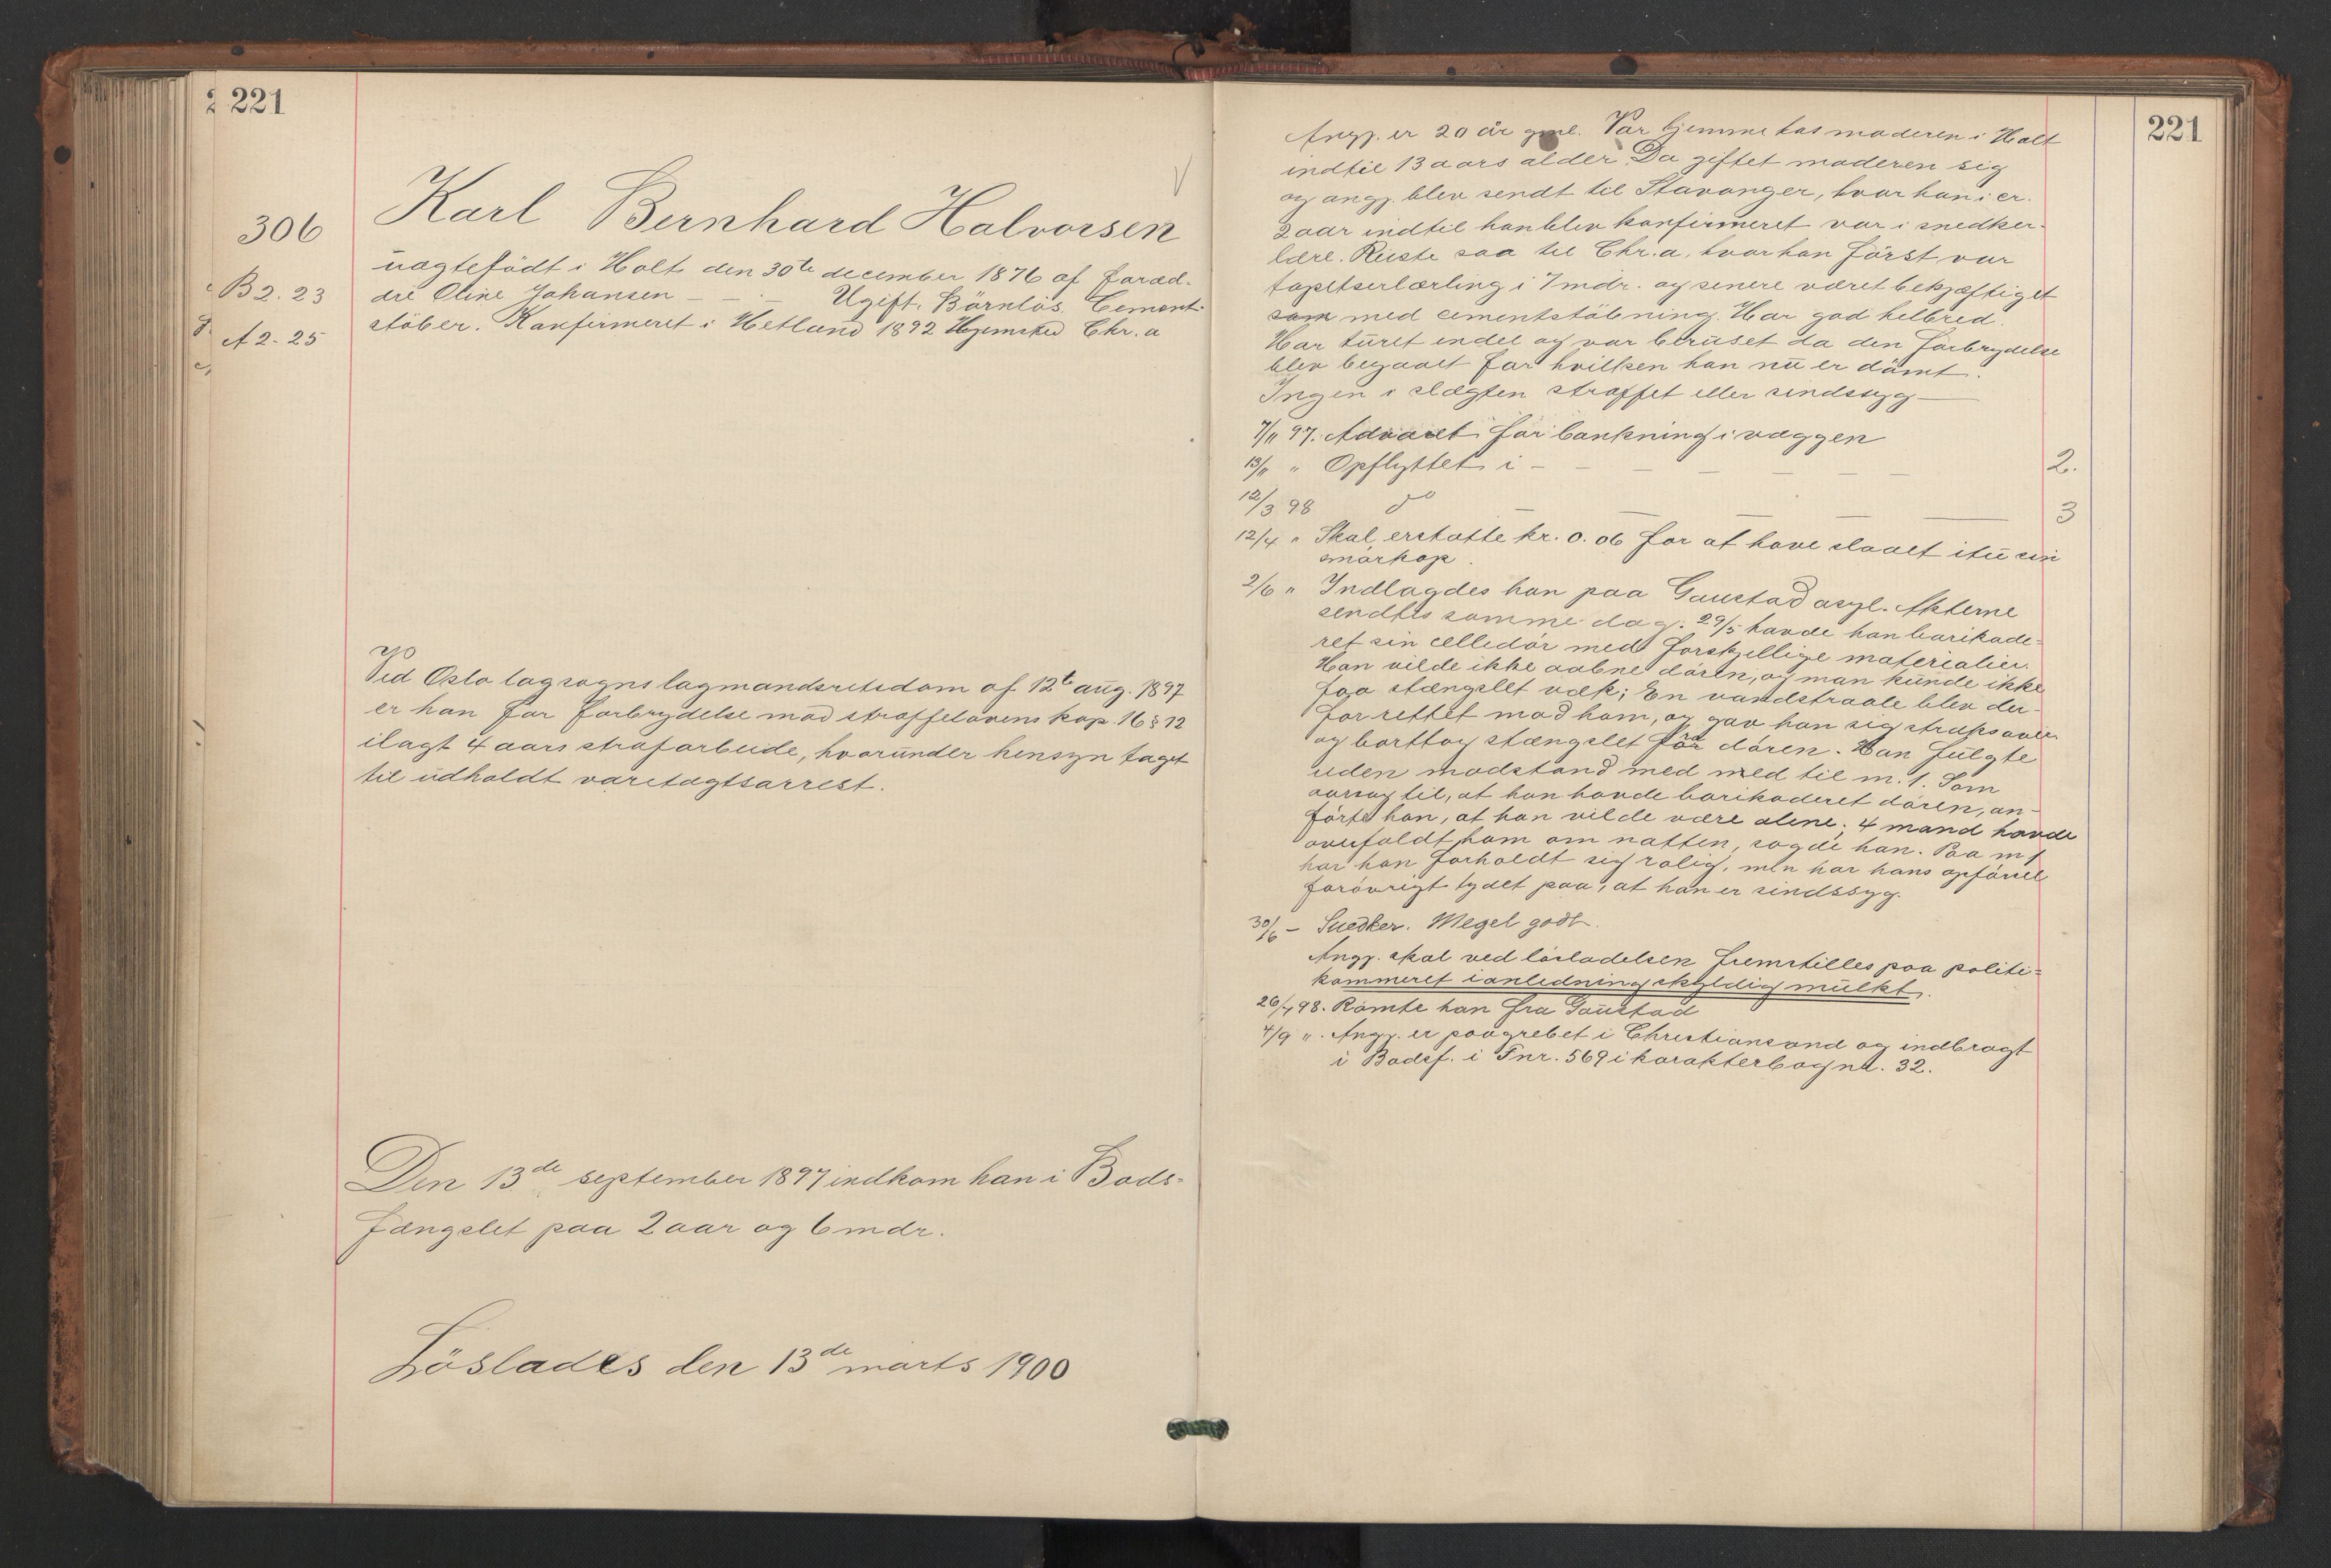 221
306
B 2. 23
A 2. 25
Karl Bernhard Halvorsen
uægtefödt i Holt den 30te december 1876 af foræl-
dre Oline Johansen — — — Ugift. Börnlös. Cement-
stöber. Konfirmeret i Hetland 1892 Hjemsted Chr.a
Ved Oslo lagsogns lagmandsretsdom af 12te aug. 1897
er han for forbrydelse mod straffelovens kap. 16 § 12
ilagt 4 aars strafarbeide, hvorunder hensyn taget
til udholdt varetægtsarrest.
Den 13de september 1897 indkom han i Bods-
fængslet paa 2 aar og 6 mdr.
Löslades den 13de marts 1900
221
Angj. er 20 år gml. Var hjemme hos moderen i Holt
indtil 13 aars alder. Da giftet moderen sig
og angj. blev sendt til Stavanger, hvor han i cr.
2 aar indtil han blev konfirmeret var i snedker-
lære. Reiste saa til Chr.a, hvor han först var
tapetserlærling i 7 mdr. og senere været bekjæftiget
som med cementstöbning. Har god helbred.
Har turet endel og var beruset da den forbrydelse
blev begaaet for hvilken han nu er dömt.
Ingen i slægten straffet eller sindssyg —
7/11 97. Advaret for bankning i væggen
13/11 " Opflyttet i — — — — — — 2.
12/3 98 do — — — — 3
12/4 " Skal erstatte kr. 0.06 for at have slaaet itu sin
smörkop.
2/6 " Indlagdes han paa Gaustad asyl. Akterne
sendtes samme dag. 29/5 havde han barikade-
ret sin celledör med forskjellige materialier.
Han vilde ikke aabne dören, og man kunde ikke
faa stængslet væk; En vandstraale blev der-
for rettet mod ham, og gav han sig straks over
og borttog stængslet for dören. Han fulgte
uden modstand med med til m. 1. Som
aarsag til, at han havde barikaderet dören, an-
förte han, at han vilde være alene; 4 mand havde
overfaldt ham om natten, sagde han. Paa m 1
har han forholdt sig rolig, men har hans opförsel
forövrigt tydet paa, at han er sindssyg.
30/6 — Snedker. Meget godt.
Angj. skal ved lösladelsen fremstilles paa politi-
kammeret i anledning skyldig mulkt.
26/7 98. Römte han fra Gaustad
4/9 ". Angj. er paagrebet i Christiansand og indbragt
i Bodsf. i Fnr. 569 i karakterbog nr. 32.